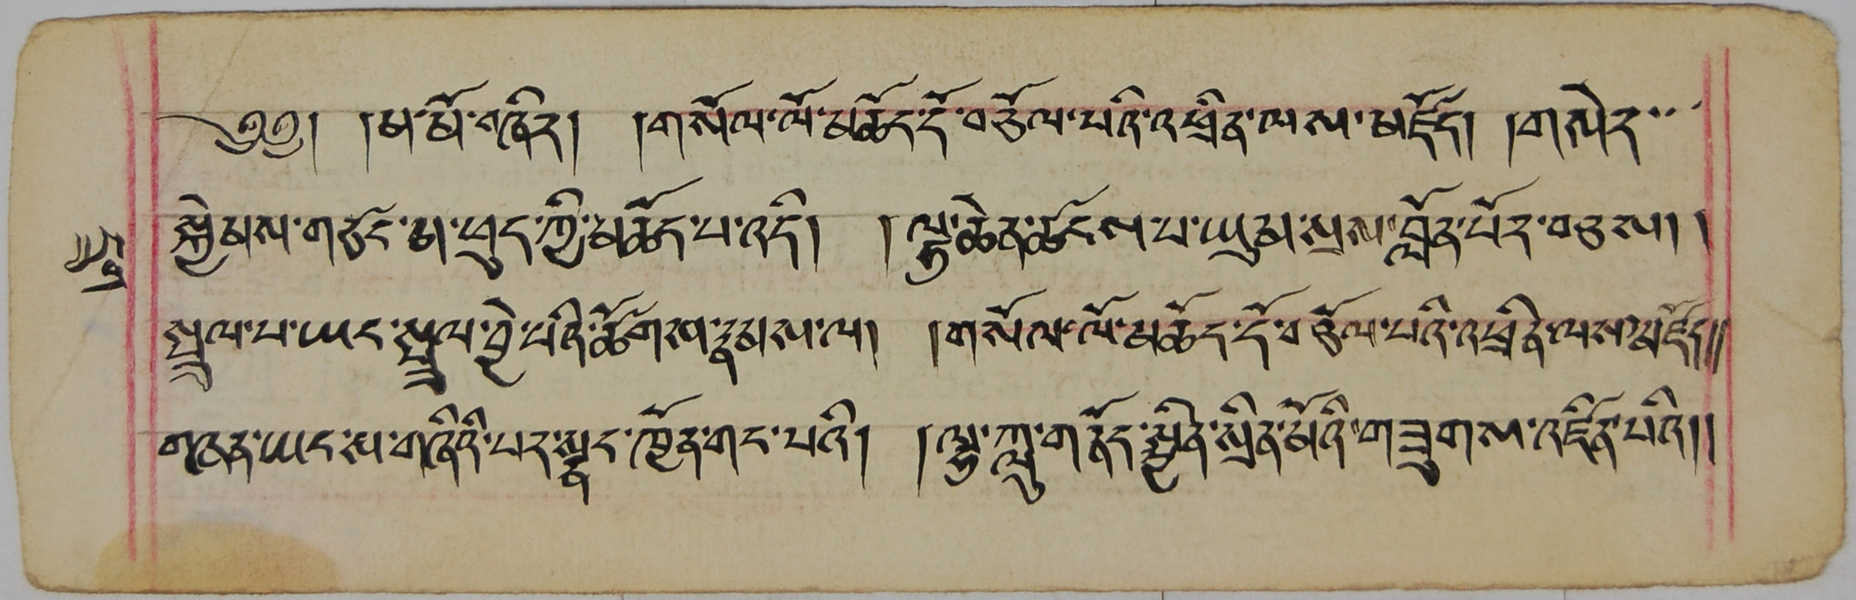 ༄༅། །མ་མོ་བཞིར། །གསོལ་ལོ་མཆོད་དོ་བཅོལ་པའི་འཕྲིན་ལས་མཛོད། །གསེར་
སྐྱེམས་གཙང་མ་ཕུད་ཀྱི་མཆོད་པ་འདི། །ལྷ་ཆེན་ཚངས་པ་ཡུམ་སྲས་བློན་པོར་བཅས། །
སྤྲུལ་པ་ཡང་སྤྲུལ་བྱེ་བའི་ཚོགས་རྣམས་ལ། །གསོལ་ལོ་མཆོད་དོ་བཅོལ་པའི་འཕྲིན་ལས་མཛོད།།
གཞན་ཡང་ས་གཞིའི་པར་སྣང་ཁྱོན་གང་པའི། །ལྷ་ཀླུ་གནོད་སྦྱིན་སྲིན་མོའི་གཟུགས་འཛིན་པའི།།